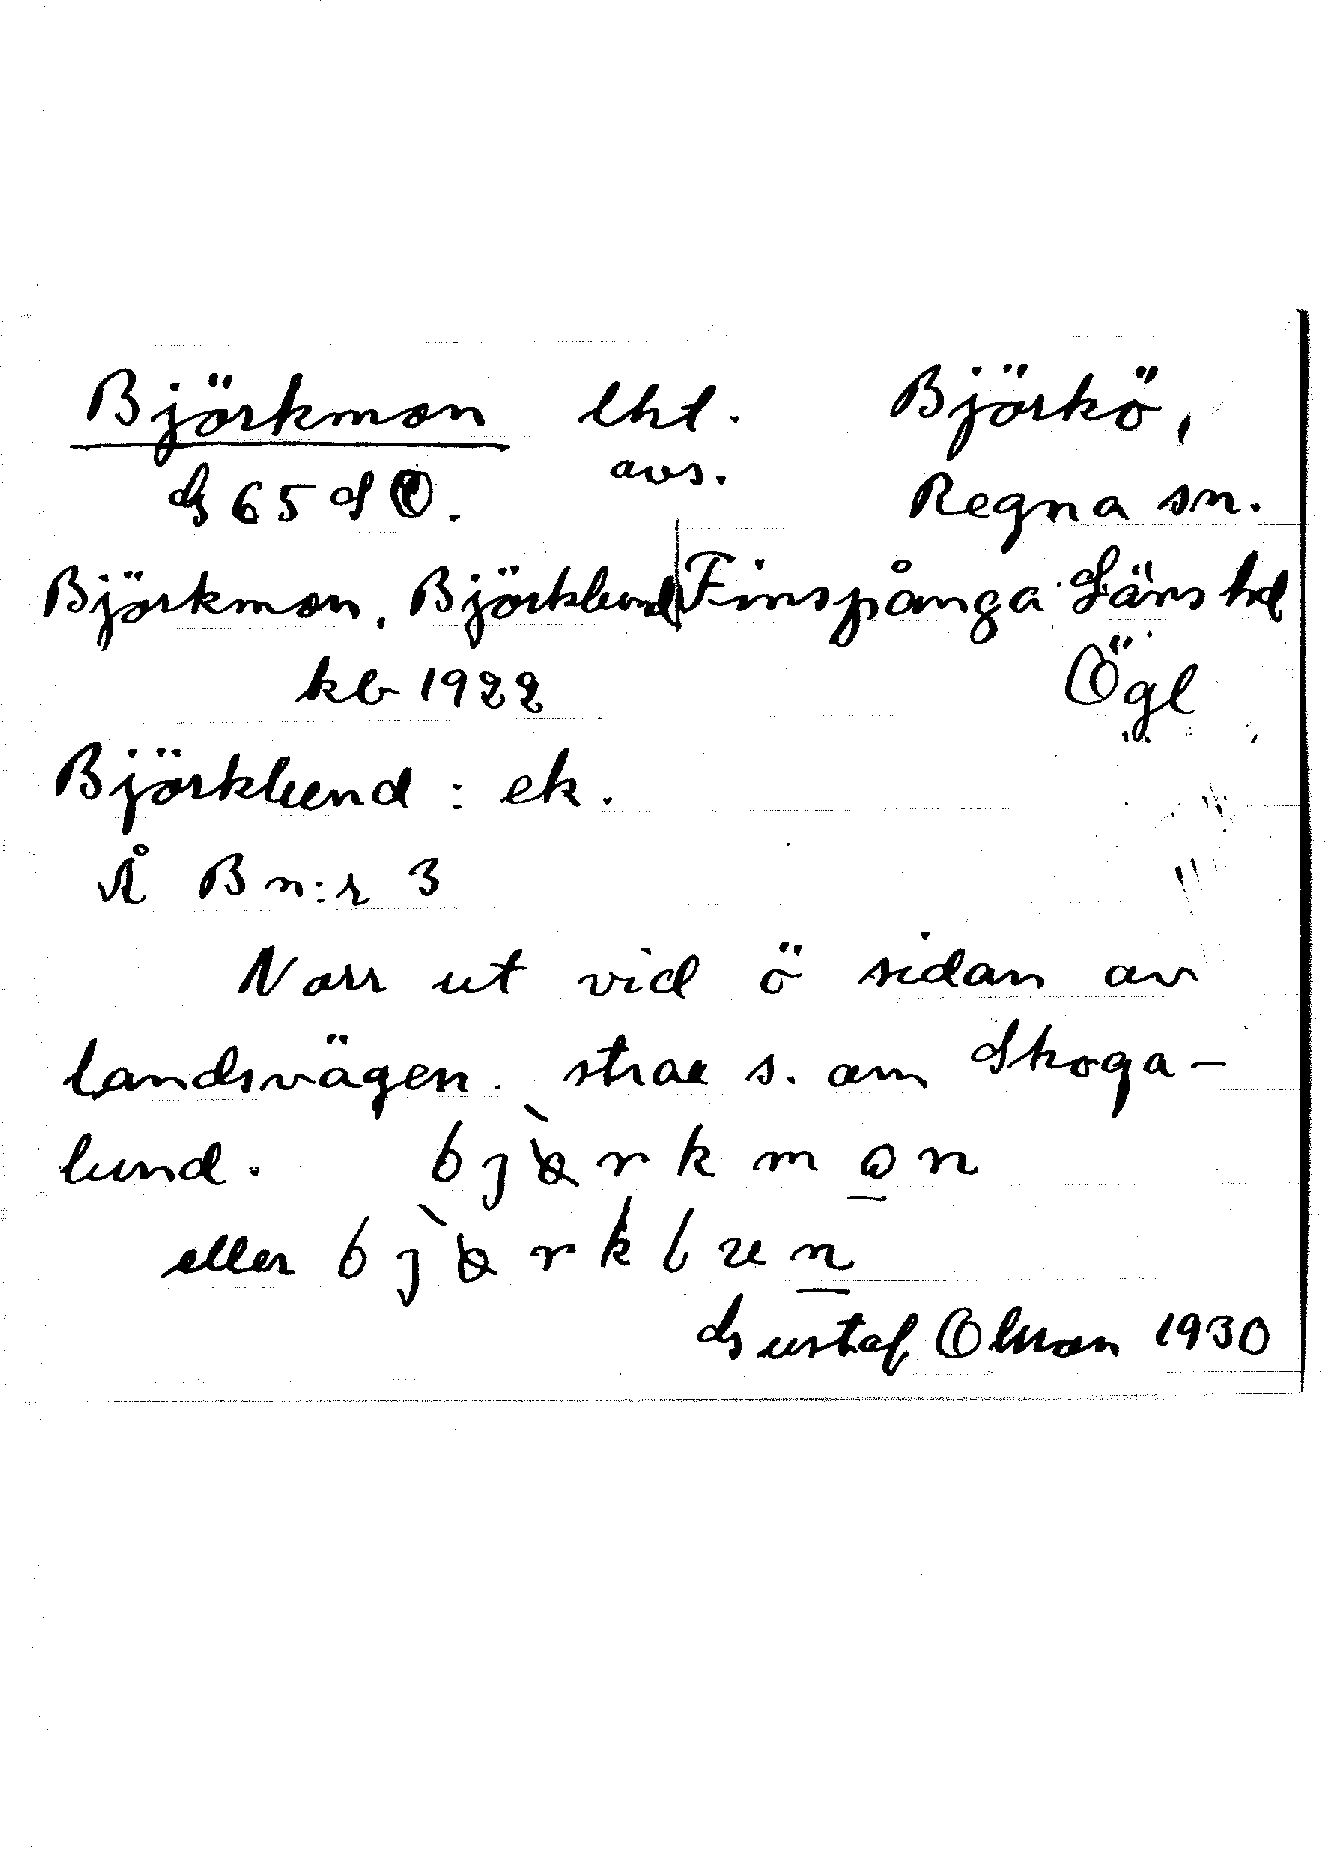 Björkmon lht. Björkö,
G 65 SO. avs. Regna sn.
Björkmon, Björklund Finspånga Läns hd
kb 1922 Ögl
Björklund : ek.
Å B n:r 3
Norr ut vid ö sidan av
landsvägen. strax s. om Skoga-
lund. bjàrkmon
eller bjàrklun
Gustaf Olsson 1930